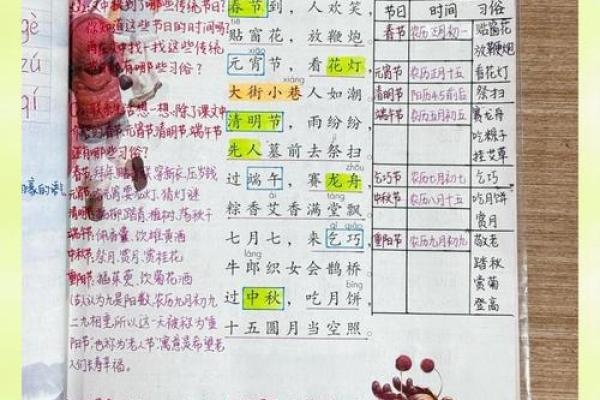 课文中提到了哪些传统节日?
你知道这些节日的时间吗?
再在文中找一找这些传统
节日有哪些习俗?
想一想,除了课文中
的春节元宵节清明节端午节
还有哪些习俗?
春节:拜年 贴 穿新衣,压岁钱
元宵节: 吃元宵,猜灯谜
清明节: 插柳踏青,植树,荡秋千
端午节: 佩香囊、饮雄黄酒
中秋节: 祭月、赏月、赏桂花
重阳节: 插茱萸、饮菊花酒
(古人认为九是阳数,农历九月初九
二九相重,所以这一天被称为"重
阳节",也称为"老人节",寓意是希望老
人们长寿幸福。
gè
zú
qí
春节到,人欢笑,
贴窗花,放鞭炮。
xiāo
元宵节,看花灯,
xiàng
大街小巷人如潮。
清明节,雨纷纷,
先人墓前去祭扫。
zhōu
过端午,赛龙舟,
ài táng
粽香艾香满堂飘。
qǐ qiǎo
七月七,来乞巧,
牛郎织女会鹊桥。
bǐng
过中秋,吃月饼,
十五圆月当空照。
节日 时间 习俗
春节 农历正月初一 贴窗花
放鞭炮
元宵节 农历正月十五 看花灯
清明节 阳历4.5前后 祭扫
端午节 农历五月初五 赛龙舟
吃粽子
挂艾草
乞巧节 农历七月初七 乞巧
中秋节 农历八月十五 吃月饼
赏月
重阳节 农历九月初九 敬老
踏秋
赏菊
登高